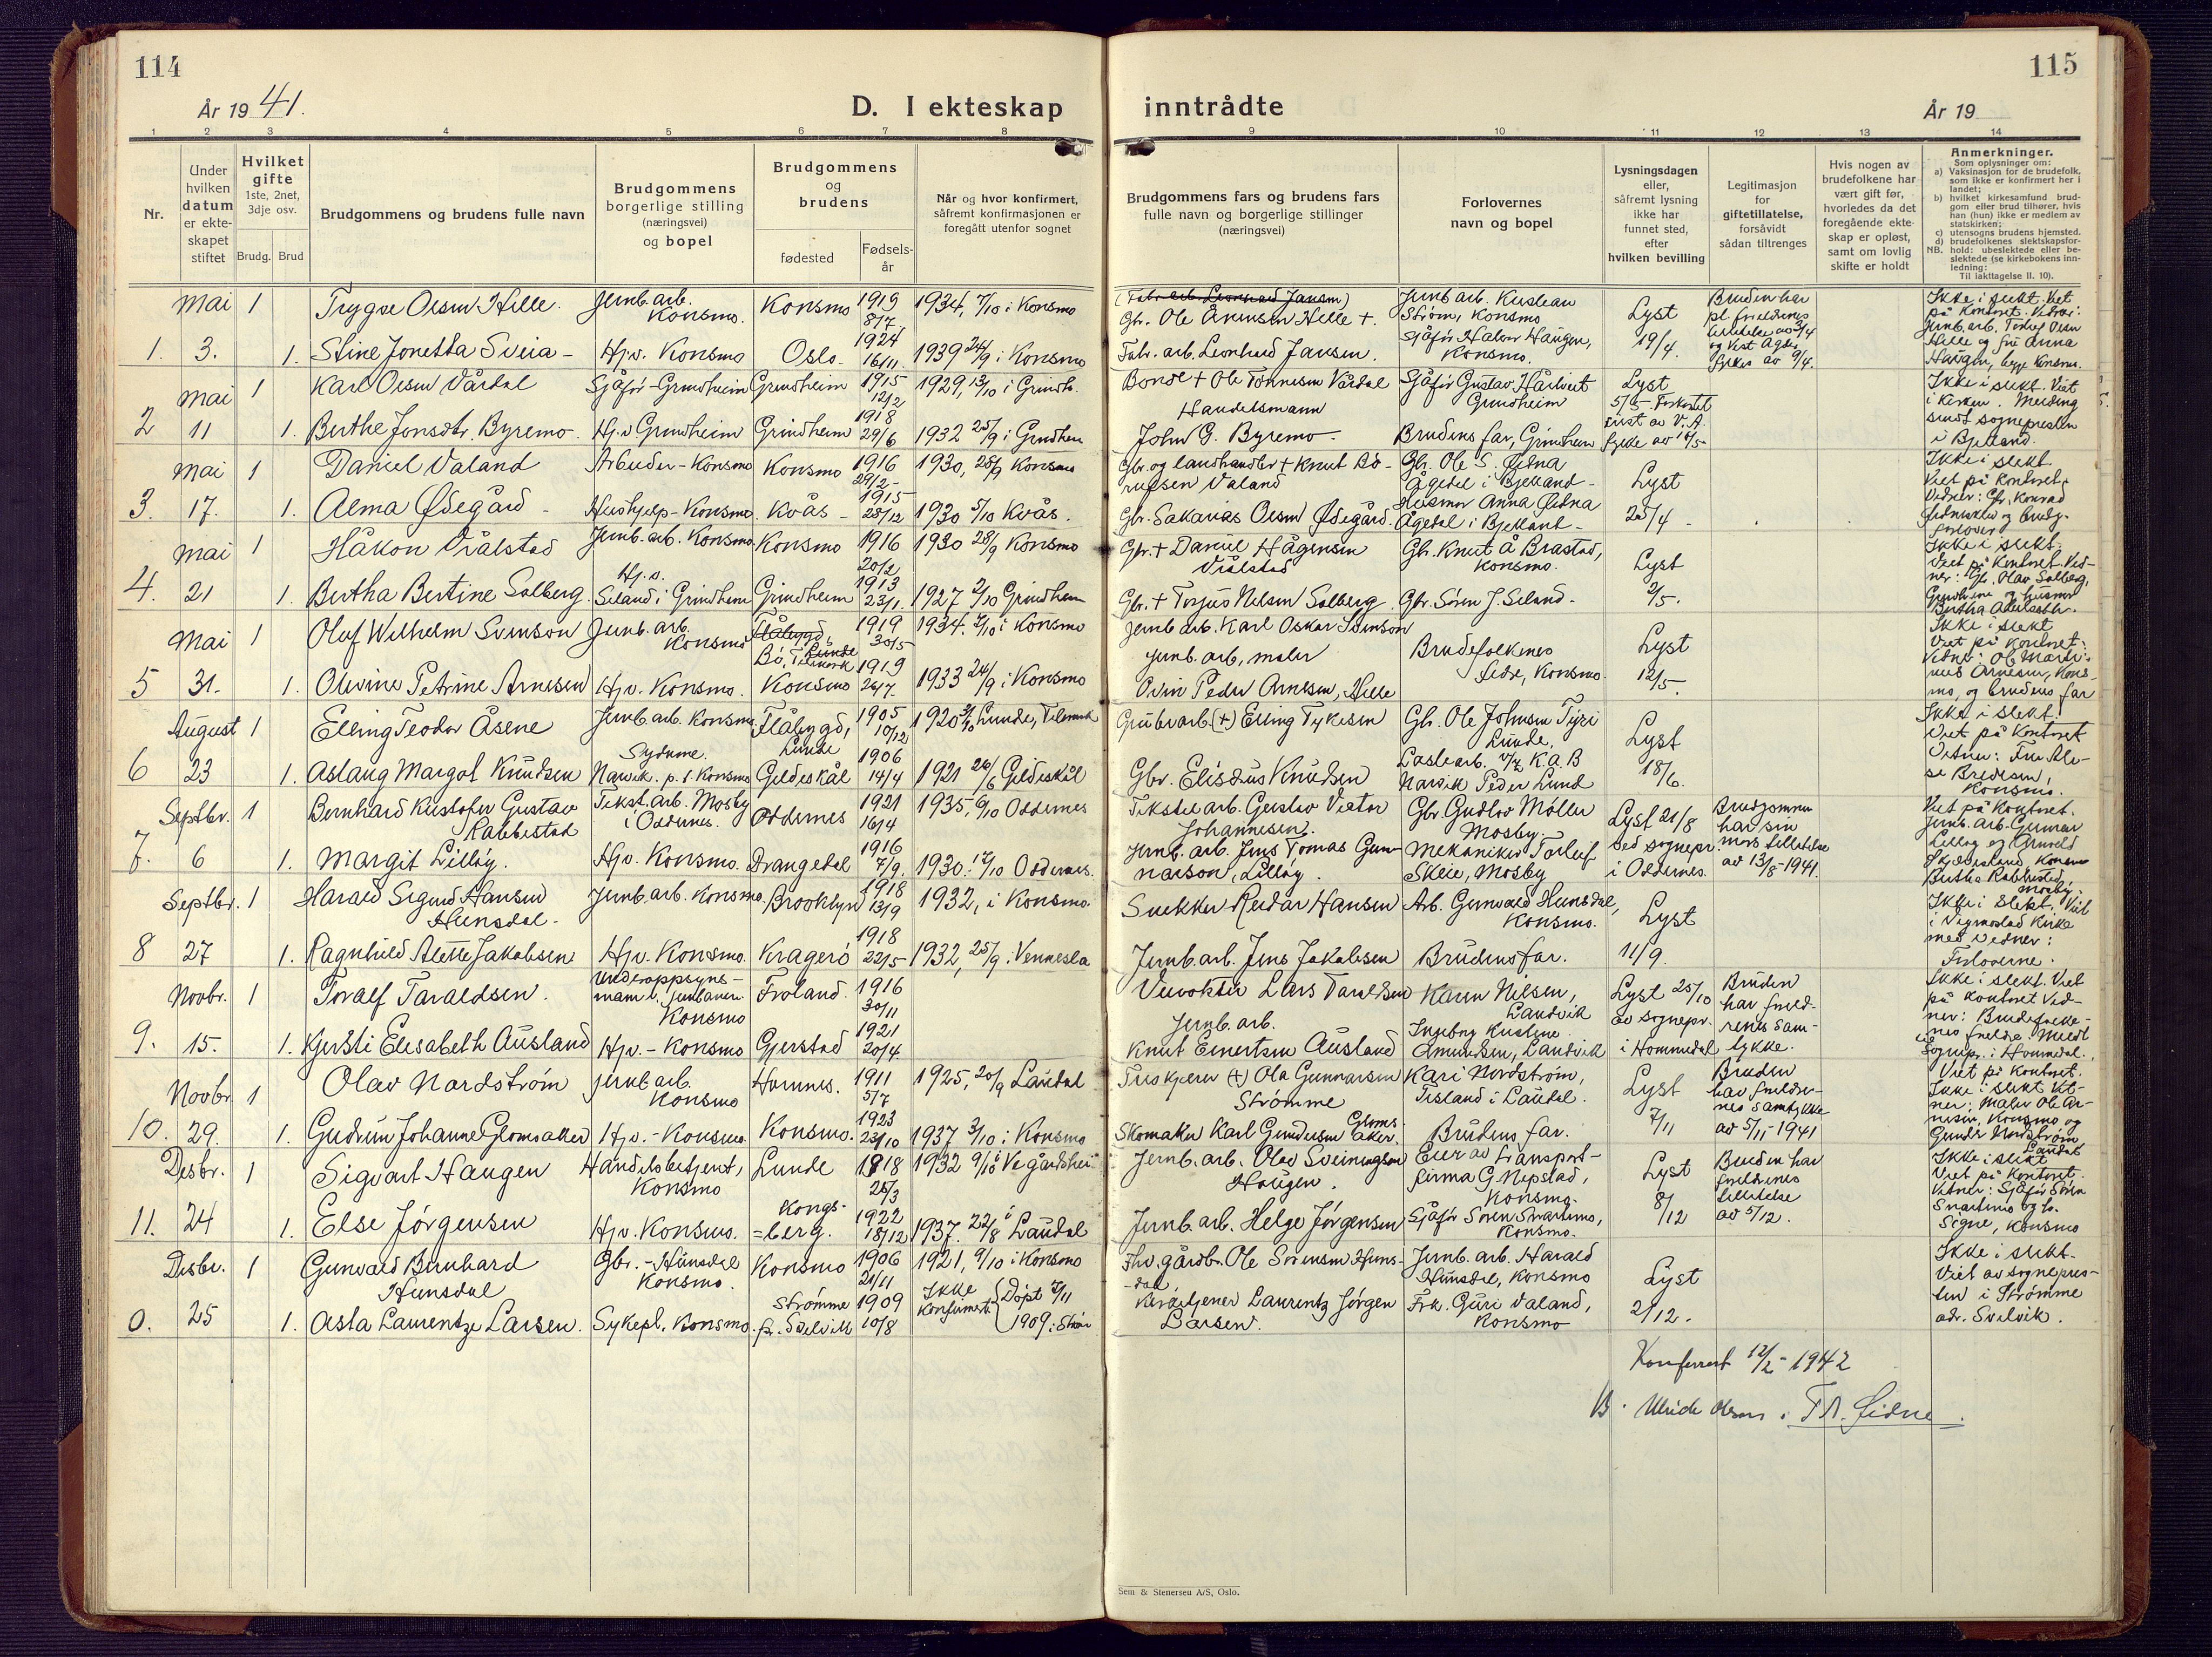 114
År 1941.
D. I ekteskap
1 2 3 4 5 6 7 8
Nr.
Under hvilken datum er ekteskapet stiftet
Hvilket gifte
1ste, 2net, 3dje osv.
Brudg. Brud
Brudgommens og brudens fulle navn
Brudgommens borgerlige stilling (næringsvei) og bopel
Brudgommens og brudens
fødested
Fødselsår
Når og hvor konfirmert, såfremt konfirmasjonen er foregått utenfor sognet
Mai 1 Trygve Olsen Helle. Jernb.arb. Konsmo. Konsmo 1919 8/7 1934, 7/10 i Konsmo
1. 3. 1. Stine Jonetta Sveia - Hjv. Konsmo Oslo. 1924 16/11. 1939 24/9 i Konsmo
Mai 1 Karl Olsen Vårdal Sjåfør-Grindheim Grindheim 1915 12/2 1929, 13/10 i Grindh.
2 11 1. Berthe Jonsdtr. Byremo. Hj.v Grindheim Grindheim 1918 29/6 1932 25/9 i Grindheim
Mai 1 Daniel Valand Arbeider-Konsmo Konsmo 1916 29/2- 1930, 28/9 Konsmo
3. 17. 1. Alma Ødegård - Hushjelp-Konsmo. Kvås - 1915 28/12 1930 5/10 Kvås.
Mai 1 Håkon Vrålstad Jernb.arb. Konsmo. Konsmo 1916 20/2 1930 28/9 Konsmo
4. 21 1. Bertha Bertine Solberg Hj.v. Seland i Grindheim Grindheim 1913 23/1. 1927 2/10 Grindheim
Mai 1 Oluf Wilhelm Svenson Jernb.arb. Konsmo Flåbygd, Lunde Bø, Telemark 1919 30/5 1934. 7/10 i Konsmo
5 31. 1. Olivine Petrine Arnesen Hjv. Konsmo. Konsmo 1919 26/7. 1933 24/9 i Konsmo
August 1 Elling Teodor Åsene Jernb.arb. Konsmo. Flåbygd, Lunde 1905 10/12 1920 Lunde, Telemark
6 23 1. Aslaug Margot Knudsen Sydame. Narvik. p.t. Konsmo Gildeskål 1906 14/4 1921 26/6 Gildeskål
Septbr. 1 Bernhard Kristofer Gustav Rabbestad Tekst.arb. Mosby i Oddernes. Oddernes 1921 16/4 1935, 6/10 Oddernes
7. 6 1. Margit Lilløy. Hjv. Konsmo. Drangedal 1916 7/9. 1930. 12/10 Oddernes.
Septbr. 1 Harald Sigurd Hansen Hunsdal- Jernb.arb. Konsmo. Brooklyn 1918 13/9 1932, i Konsmo.
8 27 1. Ragnhild Alette Jakobsen Hjv. Konsmo. Kragerø 1918 22/5 1932, 25/9 i Vennesla
Novbr. 1 Toralf Taraldsen. mann v. jernbanen Konsmo Froland. 1916 30/11
9. 15. 1. Kjersti Elisabeth Ausland Hjv.- Konsmo Gjerstad 1921 20/4
Novbr 1 Olav Nordstrøm Jernb.arb. Konsmo Hornnes. 1911 5/7 1925, 20/9 Laudal
10. 29. 1. Gudrun Johanne Glomsaker Hjv.- Konsmo. Konsmo. 1923 23/10 1937 3/10 i Konsmo
Desbr. 1 Sigvart Haugen Handelsbetjent, Konsmo Lunde 1918 25/3 1932 9/10 i Vegårdshei
11. 24 1. Else Jørgensen Hjv. Konsmo. Kongs- =berg. 1922 18/12 1937. 22/8 i Laudal
Desbr. 1 Gunvald Bernhard Hunsdal Gbr.-Hunsdal Konsmo. Konsmo 1906 21/11 1921, 9/10 i Konsmo
0. 25 1. Aasta Laurentze Larsen. Sykepl. Konsmo. Strømme pr. Svelvik 1909 10/8 Ikke konfirmert. Døpt 7/11 1909 i Strøm
115
inntrådte
År 19
9 10 11 12 13 14
Brudgommens fars og brudens fars fulle navn og borgerlige stillinger (næringsvei)
Forlovernes navn og bopel
Lysningsdagen eller, såfremt lysning ikke har funnet sted, efter hvilken bevilling
Legitimasjon for giftetillatelse, forsåvidt sådan tiltrenges
Hvis nogen av brudefolkene har vært gift før, hvorledes da det foregående ekteskap er opløst, samt om lovlig skifte er holdt
Anmerkninger.
Som oplysninger om:
a) Vaksinasjon for de brudefolk, som ikke er konfirmert her i landet;
b) hvilket kirkesamfund brudgom eller brud tilhører, hvis han (hun) ikke er medlem av statskirken;
c) utensogns brudens hjemsted.
d) brudefolkenes slektskapsforhold: ubeslektede eller beslektede (se kirkebokens innledning:
NB.
Til iakttagelse II. 10).
(Fabr.arb. Leonhard Jansen)
Gbr. Ole Arensen Helle +. Jernb.arb. Kristian Strøm, Konsmo
Fabr.arb. Leonhard Jansen. Sjåfør Halvor Haugen, Konsmo. Lyst 19/4. Bruden har
Ikke i slekt. Viet på kontoret. Vitner: Jernb.arb. Torleif Olsen Helle og fru Anna Haugen, begge Konsmo.
Bonde + Ole Tønnesen Vårdal Sjåfør Gustav Hårtveit Grindheim Lyst 5/5- Forkortet frist av V.A. fylke av
Handelsmann John G. Byremo. Brudens far, Grindheim
Ikke i slekt. Viet i kirken. Melding sendt sognepresten i Bjelland.
Gbr. og landhandler + Knut Bø- rufsen Valand Gbr. Ole S. Øidna Ågedal i Bjelland-
Gbr. Sakarias Olsen Ødegård. Husmor Anna Øidna Ågedal i Bjelland- Lyst 25/4.
Ikke i slekt. Viet på kontoret. Vitner: Gbr. Konrad
Gbr. + Daniel Hågensen Vrålstad Gbr. Knut Å Brastad, Konsmo.
Gbr. + Torjus Nilsen Solberg. Gbr. Søren J. Seland. Lyst 2/5.
Ikke i slekt. Viet på kontoret. Vitner: Gbr. Olav Solberg, Grindheim og husmor
Jernb.arb. Karl Oskar Svenson
Jernb.arb, maler Ovin Peder Arnesen, Helle Brudefolkenes fedre, Konsmo. Lyst 12/5.
Ikke i slekt Viet på kontoret: Vitner: Ole Martinus Arnesen, Konsmo, og brudens far
Grubearb. (+) Elling Tykesen Gbr. Ole Johnsen Tyri Lunde.
Gbr. Eliseus Knudsen Lastearb. v/ K.A.B Narvik Peder Lund Lyst 18/6.
Ikke i slekt. Viet på kontoret Vitner: Fru Bredesen, Konsmo.
Tekstilarb. Gustav Viktor Johannesen. Gbr. Gudlov Møller Mosby.
Jernb.arb. Jens Tomas Gunnarson, Lilløy. Mekaniker Torleif Skeie, Mosby Lyst 21/8 ved sognepr. i Oddernes. Brudgommen har sin mors tillatelse av 13/8-1941.
Viet på kontoret. Jernb.arb. Gunnar Lilløy og
Snekker Reidar Hansen Arb. Gunvald Hunsdal, Konsmo.
Jernb.arb. Jens Jakobsen Brudens far. Lyst 11/9.
Ikke i slekt. Viet i Vigmostad kirke med vitner: Forloverne.
Veivokter Lars Taraldsen Karen Nilsen, Landvik
Jernb.arb. Knut Einertsen Ausland Ingeborg Kristine Amundsen, Landvik Lyst 25/10 av sognepr. i Hommedal Bruden har foreldrenes samtykke.
Ikke i slekt. Viet på kontoret Vitner: Brudefolkenes foreldre. Meldt sognepr. i Hommedal.
Treskjærer (+) Ola Gunnarsen Strømme Kari Nordstrøm, Tisland i Laudal.
Skomaker Karl Gundersen Glomsaker. Brudens far. Lyst 7/11 Bruden har foreldrenes samtykke av 5/11-1941
Viet på kontoret. Ikke i slekt Vitner: Maler Ole Arnesen, Konsmo og Gunder Nordstrøm, Laudal
Jernb.arb. Olav Sveinungson Haugen. Eier av transportfirma G. Nepstad, Konsmo.
Jernb.arb. Helge Jørgensen Sjåfør Søren Snartemo, Konsmo. Lyst 8/12 Bruden har foreldrenes tillatelse av 5/12.
Ikke i slekt Viet på kontoret. Vitner: Sjåfør Søren Snartemo og Signe, Konsmo
Fhv. gårdbr. Ole Sørensen Hunsdal, Jernb.arb. Harald Hunsdal, Konsmo
Kirketjener Laurentz Jørgen Larsen. Frk. Guri Valand, Konsmo Lyst 2/12.
Ikke i slekt- Viet av sognepresten i Strømme adr. Svelvik.
Konferert 12/2-1942
Sem & Stenersen A/S, Oslo.